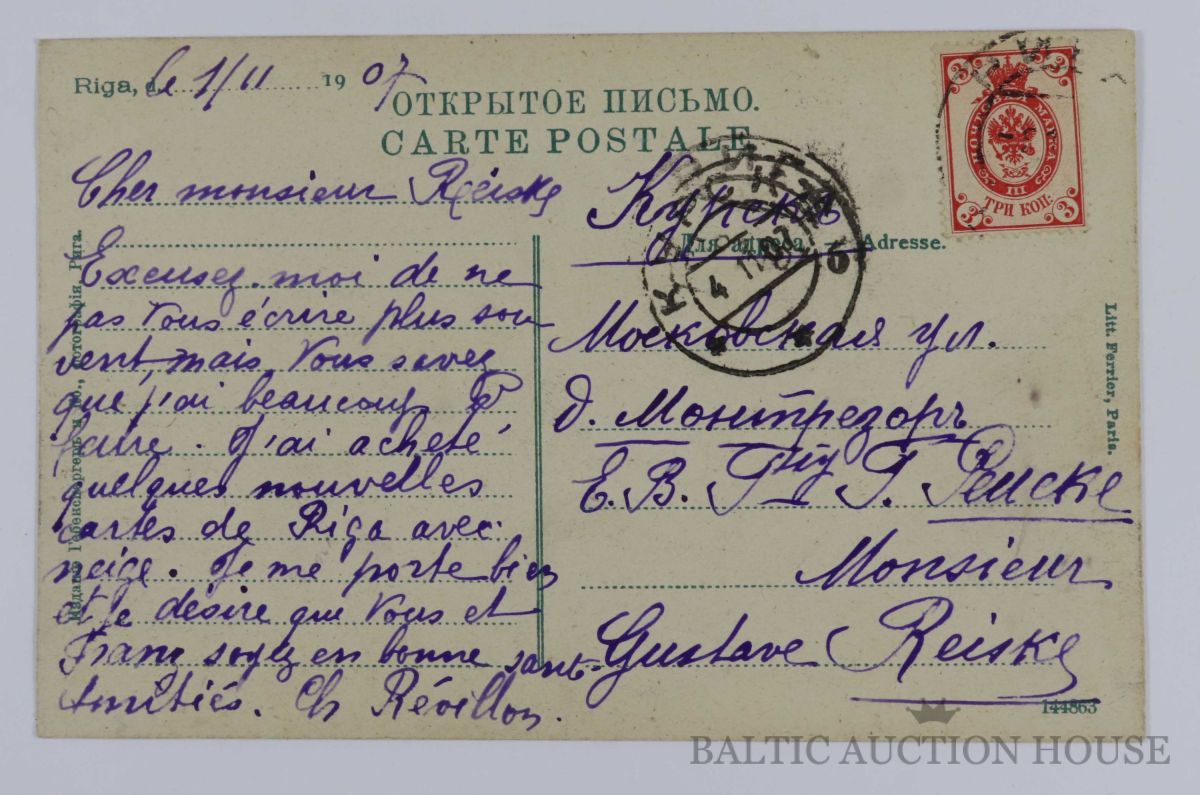 Riga, d le 1/11 1907
ОТКРЫТОЕ ПИСЬМО.
CARTE POSTALE
Cher monsieur Réiske
Excusez-moi de ne
pas vous écrire plus sou
vent, mais vous savez
que j'ai beaucoup à
faire. J'ai acheté
quelques nouvelles
cartes de Riga avec
neige. Je me porte bien
et je désire que vous et
Franz soyez en bonne sant.
Amitiés. Ch Révillon.
Курскъ
Для адреса. Adresse.
Московская ул.
д. Монтрезоръ
Е. В. Г. Реиске
Monsieur
Gustave Reiske
144863
МАРКА
III
ТРИ КОП.
3 3 3 3
КУРСКЪ
4 11 07
Litt. Ferrier, Paris.
Рига.
BALTIC AUCTION HOUSE